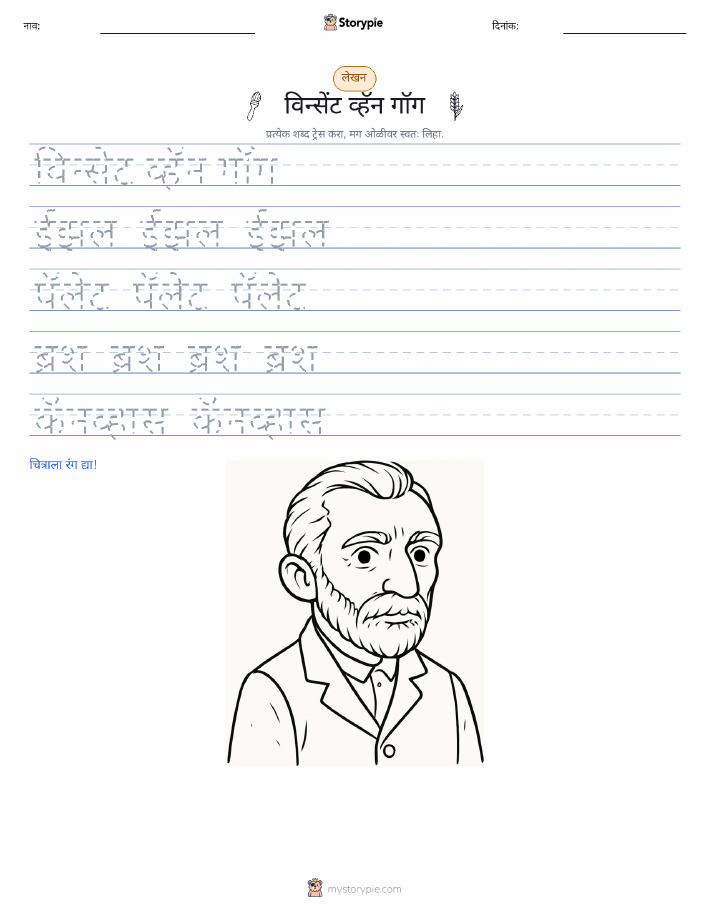 नाव:
Storypie
दिनांक:
लेखन
विन्सेंट व्हॅन गॉग
प्रत्येक शब्द ट्रेस करा, मग ओळीवर स्वतः लिहा.
विन्सेंट व्हॅन गॉग
ईझल ईझल ईझल
पॅलेट पॅलेट पॅलेट
ब्रश ब्रश ब्रश ब्रश
कॅनव्हास कॅनव्हास
चित्राला रंग द्या!
mystorypie.com